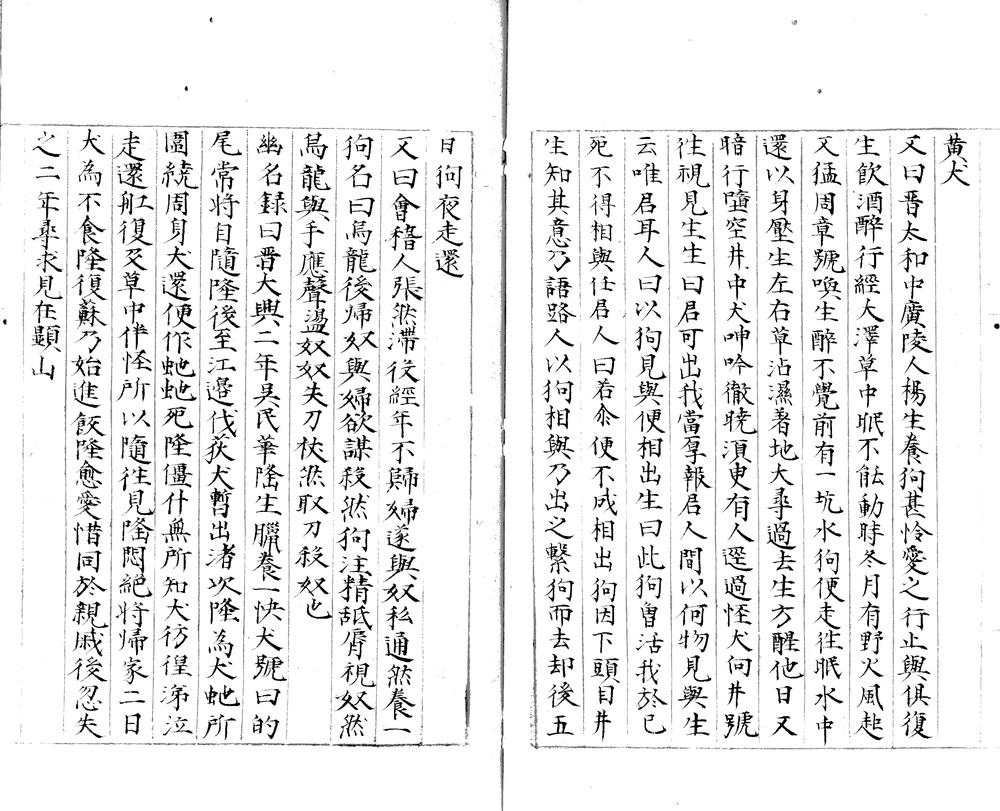 黄犬
又曰晋太和中廣陵人楊生養狗甚怜愛之行止與俱復
生飲酒醉行經大澤草中眠不能動時冬月有野火風起
又猛周章號喚生醉不覺前有一坑水狗便走徃眠水中
還以身壓生左右草沾濕着地火尋過去生方醒他日又
暗行墮空井中犬呻吟徹曉須臾有人逕過怪犬向井號
徃視見生生曰君可出我當厚報君人間以何物見與生
云唯君耳人曰以狗見與便相出生曰此狗曽活我於已
死不得相與任君人曰若尒便不成相出狗因下頭目井
生知其意乃語路人以狗相與乃出之繫狗而去却後五
日狗夜走還
又曰會稽人張然滯役經年不歸婦遂與奴私通然養一
狗名曰烏龍後帰奴與婦欲謀殺然狗注精舐脣視奴然
烏龍與手應聲盪奴奴失刀杖然取刀殺奴也
幽名録曰晋大興二年吳民華隆生臘養一快犬號曰的
尾常將自隨隆後至江邉伐荻犬暫出渚次隆為犬虵所
圍繞周身犬還便作虵虵死隆僵什無所知犬彷徨涕泣
走還舡復及草中伴怪所以隨徃見隆悶絶將帰家二日
犬為不食隆復蘇乃始進飯隆愈愛惜同於親戚後忽失
之二年尋求見在顯山